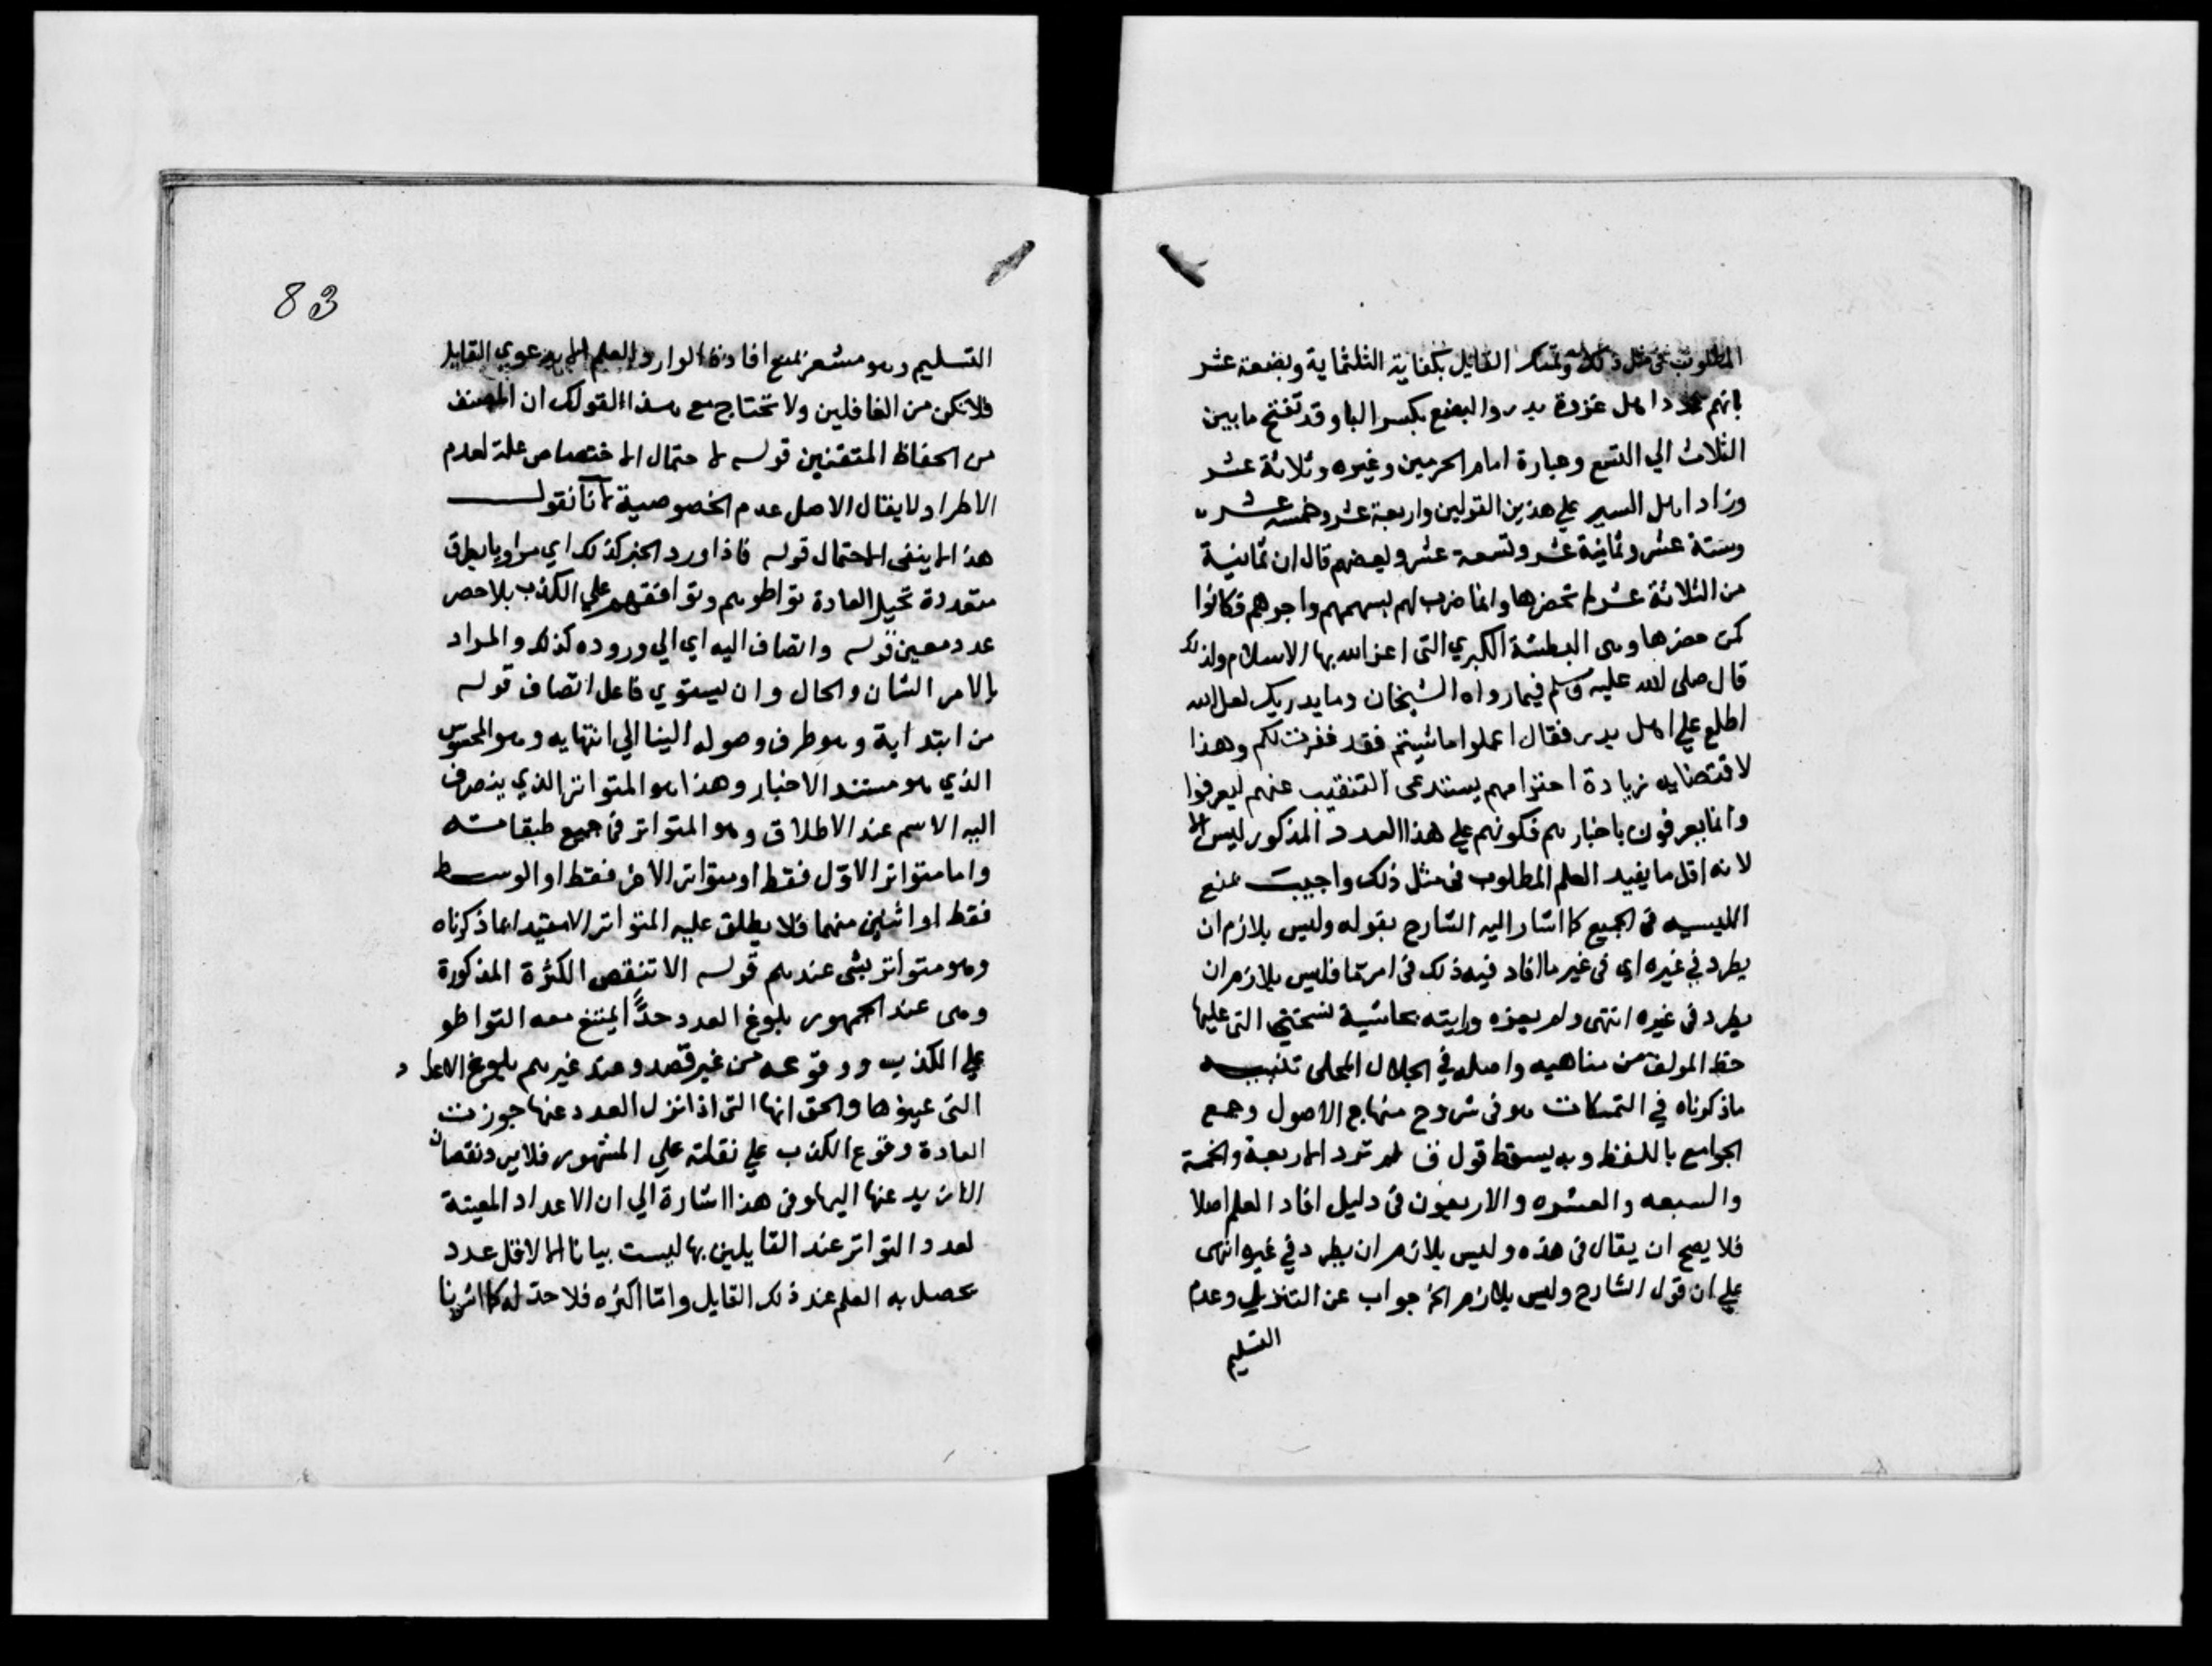 المطلوب في مثل ذلك وتمسك القايل بكفاية الثلثماية وبضعة عشر
بانهم عدد اهل غزوة بدر والبضع بكسر البا وقد تفتح ما بين
الثلاث الي التسع وعبارة امام الحرمين وغيره وثلاثة عشر
وزاد اهل السير علي هذين القولين واربعة عشر وخمسة عشر
وستة عشر وثمانية عشر وتسعة عشر وبعضهم قال ان ثمانية
من الثلاثة عشر لم تحضرها وانما ضرب لهم بسهمهم واجرهم فكانوا
كمن حضرها وهي البطشة الكبري التي اعز الله بها الاسلام ولذلك
قال صلي الله عليه وسلم فيما رواه الشيخان وما يدريك لعل الله
اطلع علي اهل بدر فقال اعملوا ما شيتم فقد غفرت لكم وهذا
لاقتضايه زيادة احترامهم يستدعي التنقيب عنهم ليعرفوا
وانما يعرفون باخبارهم فكونهم علي هذا العدد المذكور ليس الا
لانه اقل ما يفيد العلم المطلوب في مثل ذلك واجيب بمنع
الليسيه في الجميع كما اشار اليه الشارح بقوله وليس بلازم ان
يطرد في غيره اي في غير ما افاد فيه ذلك في امر ما فليس بلازم ان
يطرد في غيره انتهي ولم يعزه ورايته بحاشية نسختي التي عليها
خط المولف من مناهيه واصله في الجلال المحلي تنبيه
ما ذكرناه في التمسكات هو في شروح منهاج الاصول وجمع
الجوامع باللفظ وبه يسقط قول ق لم ترد الاربعة والخمسة
والسبعه والعشره والاربعون في دليل افاد العلم اصلا
فلا يصح ان يقال في هذه وليس بلازم ان يطرد في غيره انتهي
علي ان قول الشارح وليس بلازم الخ جواب عن التنزيل وعدم
التسليم
83
التسليم وهو مشعر بمنع افادة الوارد العلم دعوي القايل
فلا تكن من الغافلين ولا تحتاج مع هذا القولك ان المصنف
من الحفاظ المتقنين قوله لاحتمال الاختصاص علة لعدم
الاطراد لا يقال الاصل عدم الخصوصية لانا نقول
هذا لا ينفي الاحتمال قوله فاذا ورد الخبر كذلك اي مرويا بطرق
متعددة تحيل العادة تواطوهم وتوافقهم علي الكذب بلا حصر
عدد معين قوله وانضاف اليه اي الي وروده كذلك والمراد
بالامر الشان والحال وان يستوي فاعل انضاف قوله
من ابتداية وهو طرف وصوله الينا الي انتهايه وهو المحسوس
الذي هو مستند الاخبار وهذا هو المتواتر الذي ينصرف
اليه الاسم عند الاطلاق وهو المتواتر في جميع طبقاته
واما متواتر الاول فقط او متواتر الاخر فقط او الوسط
فقط او اثنين منهما فلا يطلق عليه المتواتر الا مقيدا بما ذكرناه
وهو متواتر بشي عندهم قوله الا تنقص الكثرة المذكورة
وهي عند الجمهور بلوغ العدد حدا يمتنع معه التواطو
علي الكذب ووقوعه من غير قصد وعند غيرهم بلوغ الاعداد
التي عينوها والحق انها التي اذا نزل العدد عنها جوزت
العادة وقوع الكذب علي نقلته علي المشهور فلا يرد نقصان
الازيد عنها اليها وفي هذا اشارة الي ان الاعداد المعينة
لعدد التواتر عند القايلين بها ليست بيانا الا لاقل عدد
يحصل به العلم عند ذلك القايل واما اكثره فلا حد له كما اشرنا